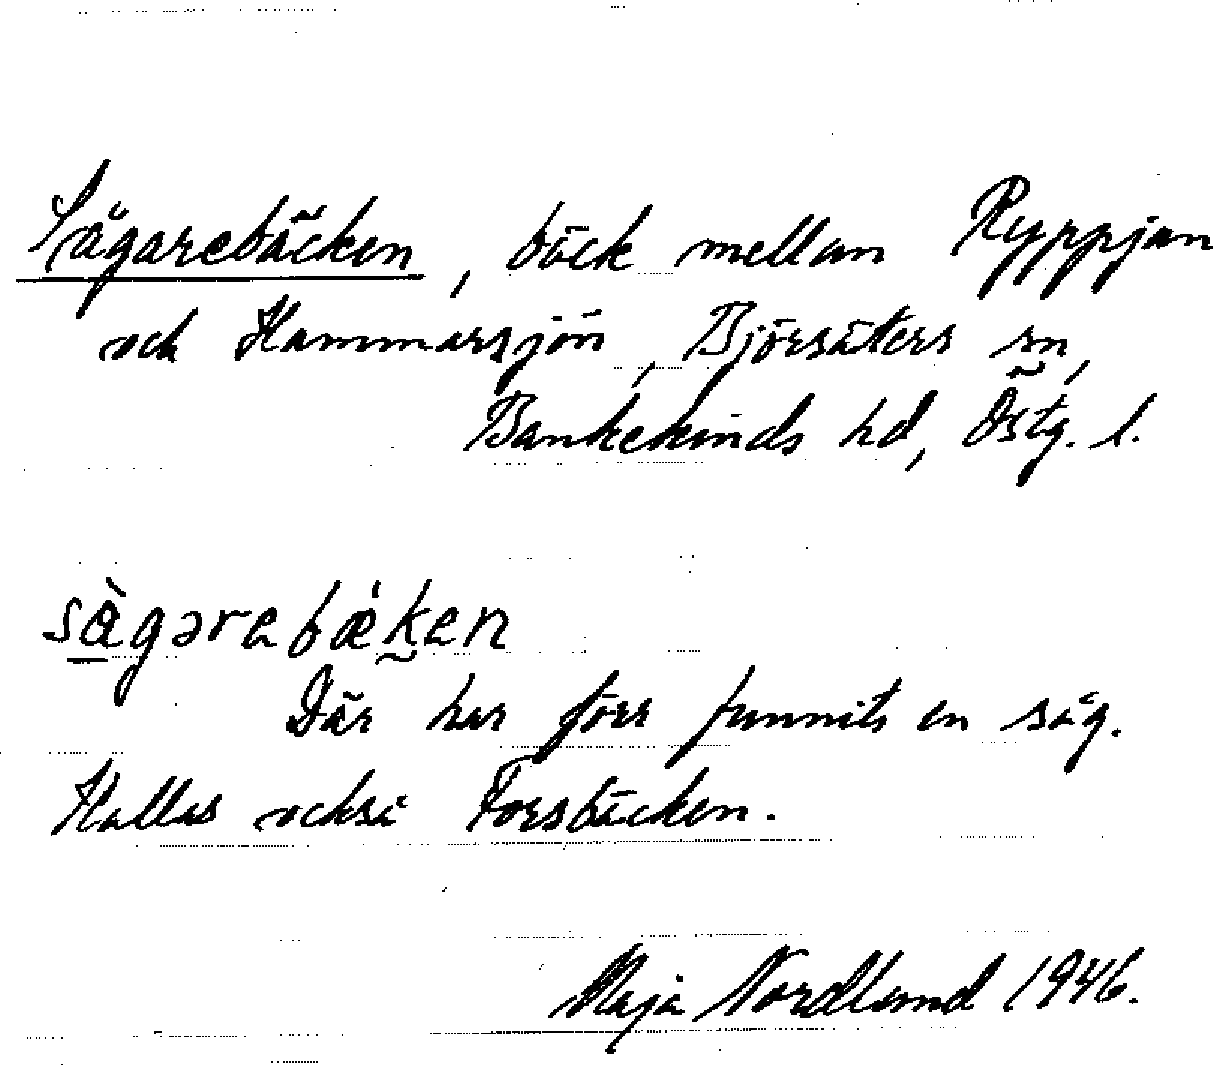 Sågarebäcken, bäck mellan Ryppjan
och Hammarsjön, Björsäters sn,
Bankekinds hd, Östg. l.
sàgəreb​ǽken
Där har förr funnits en såg.
Kallas också Forsbäcken.
Maja Nordlund 1946.